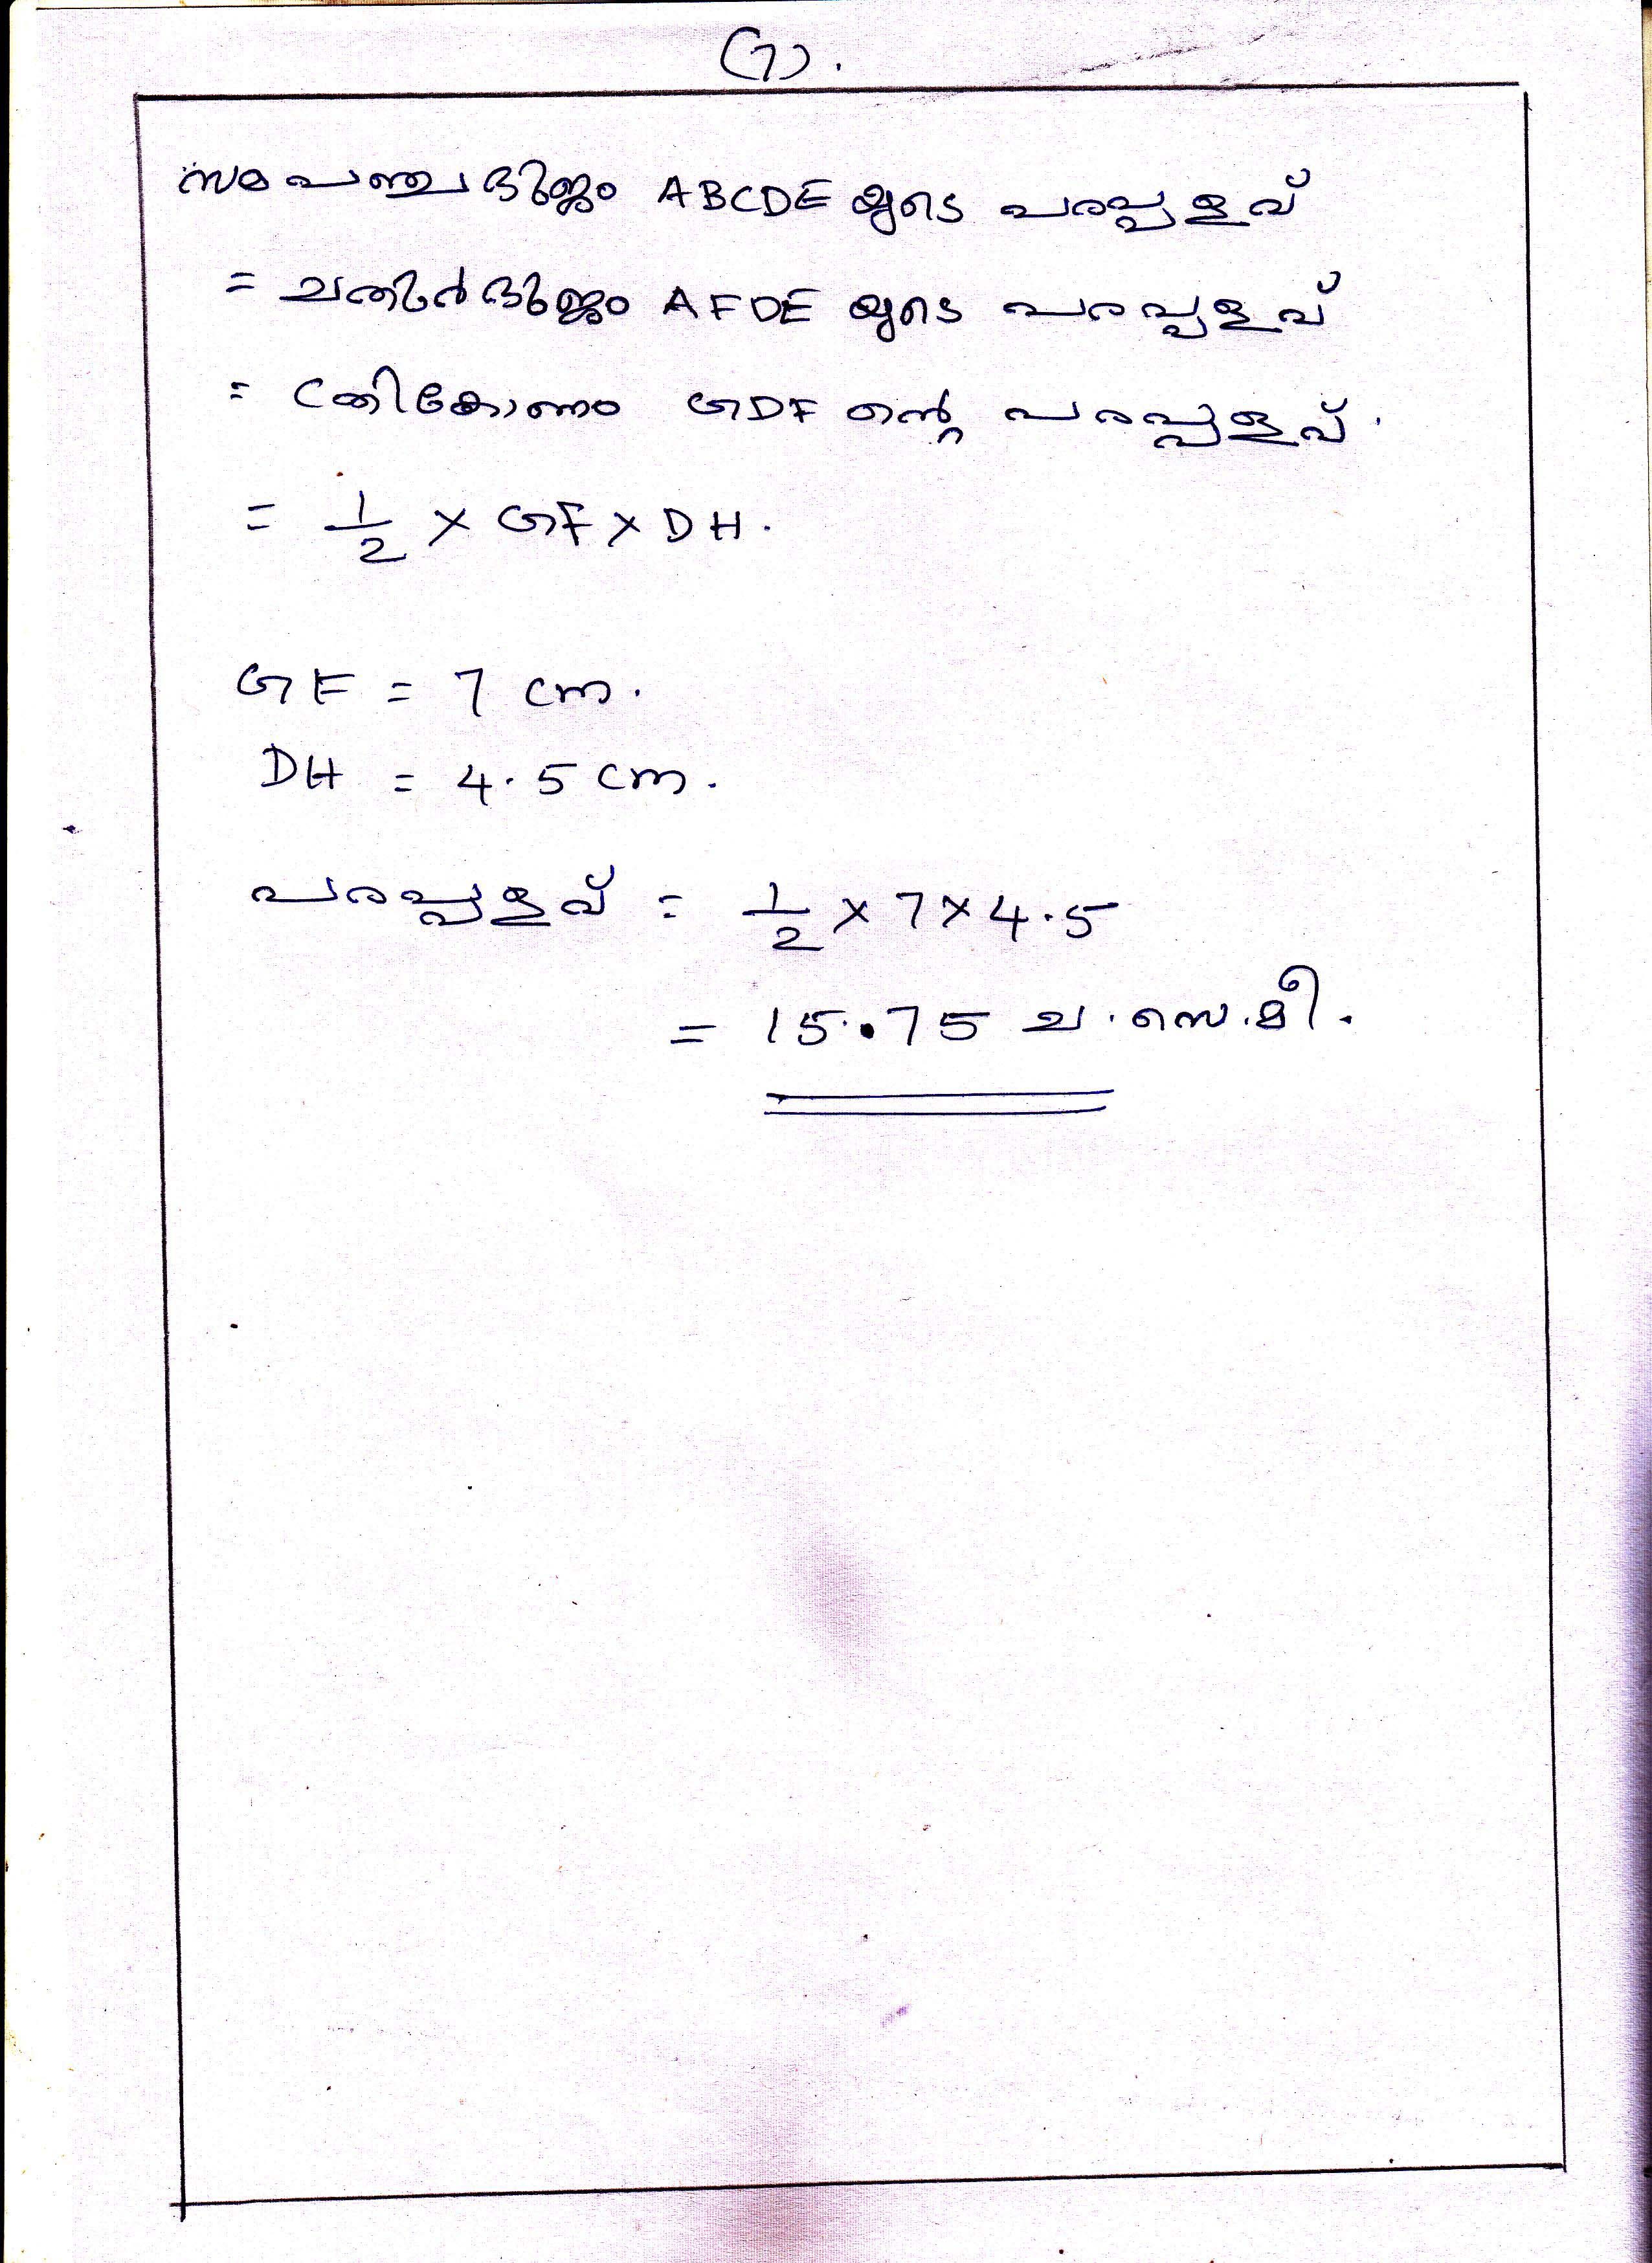 (7).
സമപഞ്ചഭുജം ABCDE യുടെ പരപ്പളവ്
= ചതുർഭുജം AFDE യുടെ പരപ്പളവ്
= ത്രികോണം GDF ന്റെ പരപ്പളവ്.
= 1/2 × GF × DH.
GF = 7 cm.
DH = 4.5 cm.
പരപ്പളവ് = 1/2 × 7 × 4.5
= 15.75 ച.സെ.മീ.